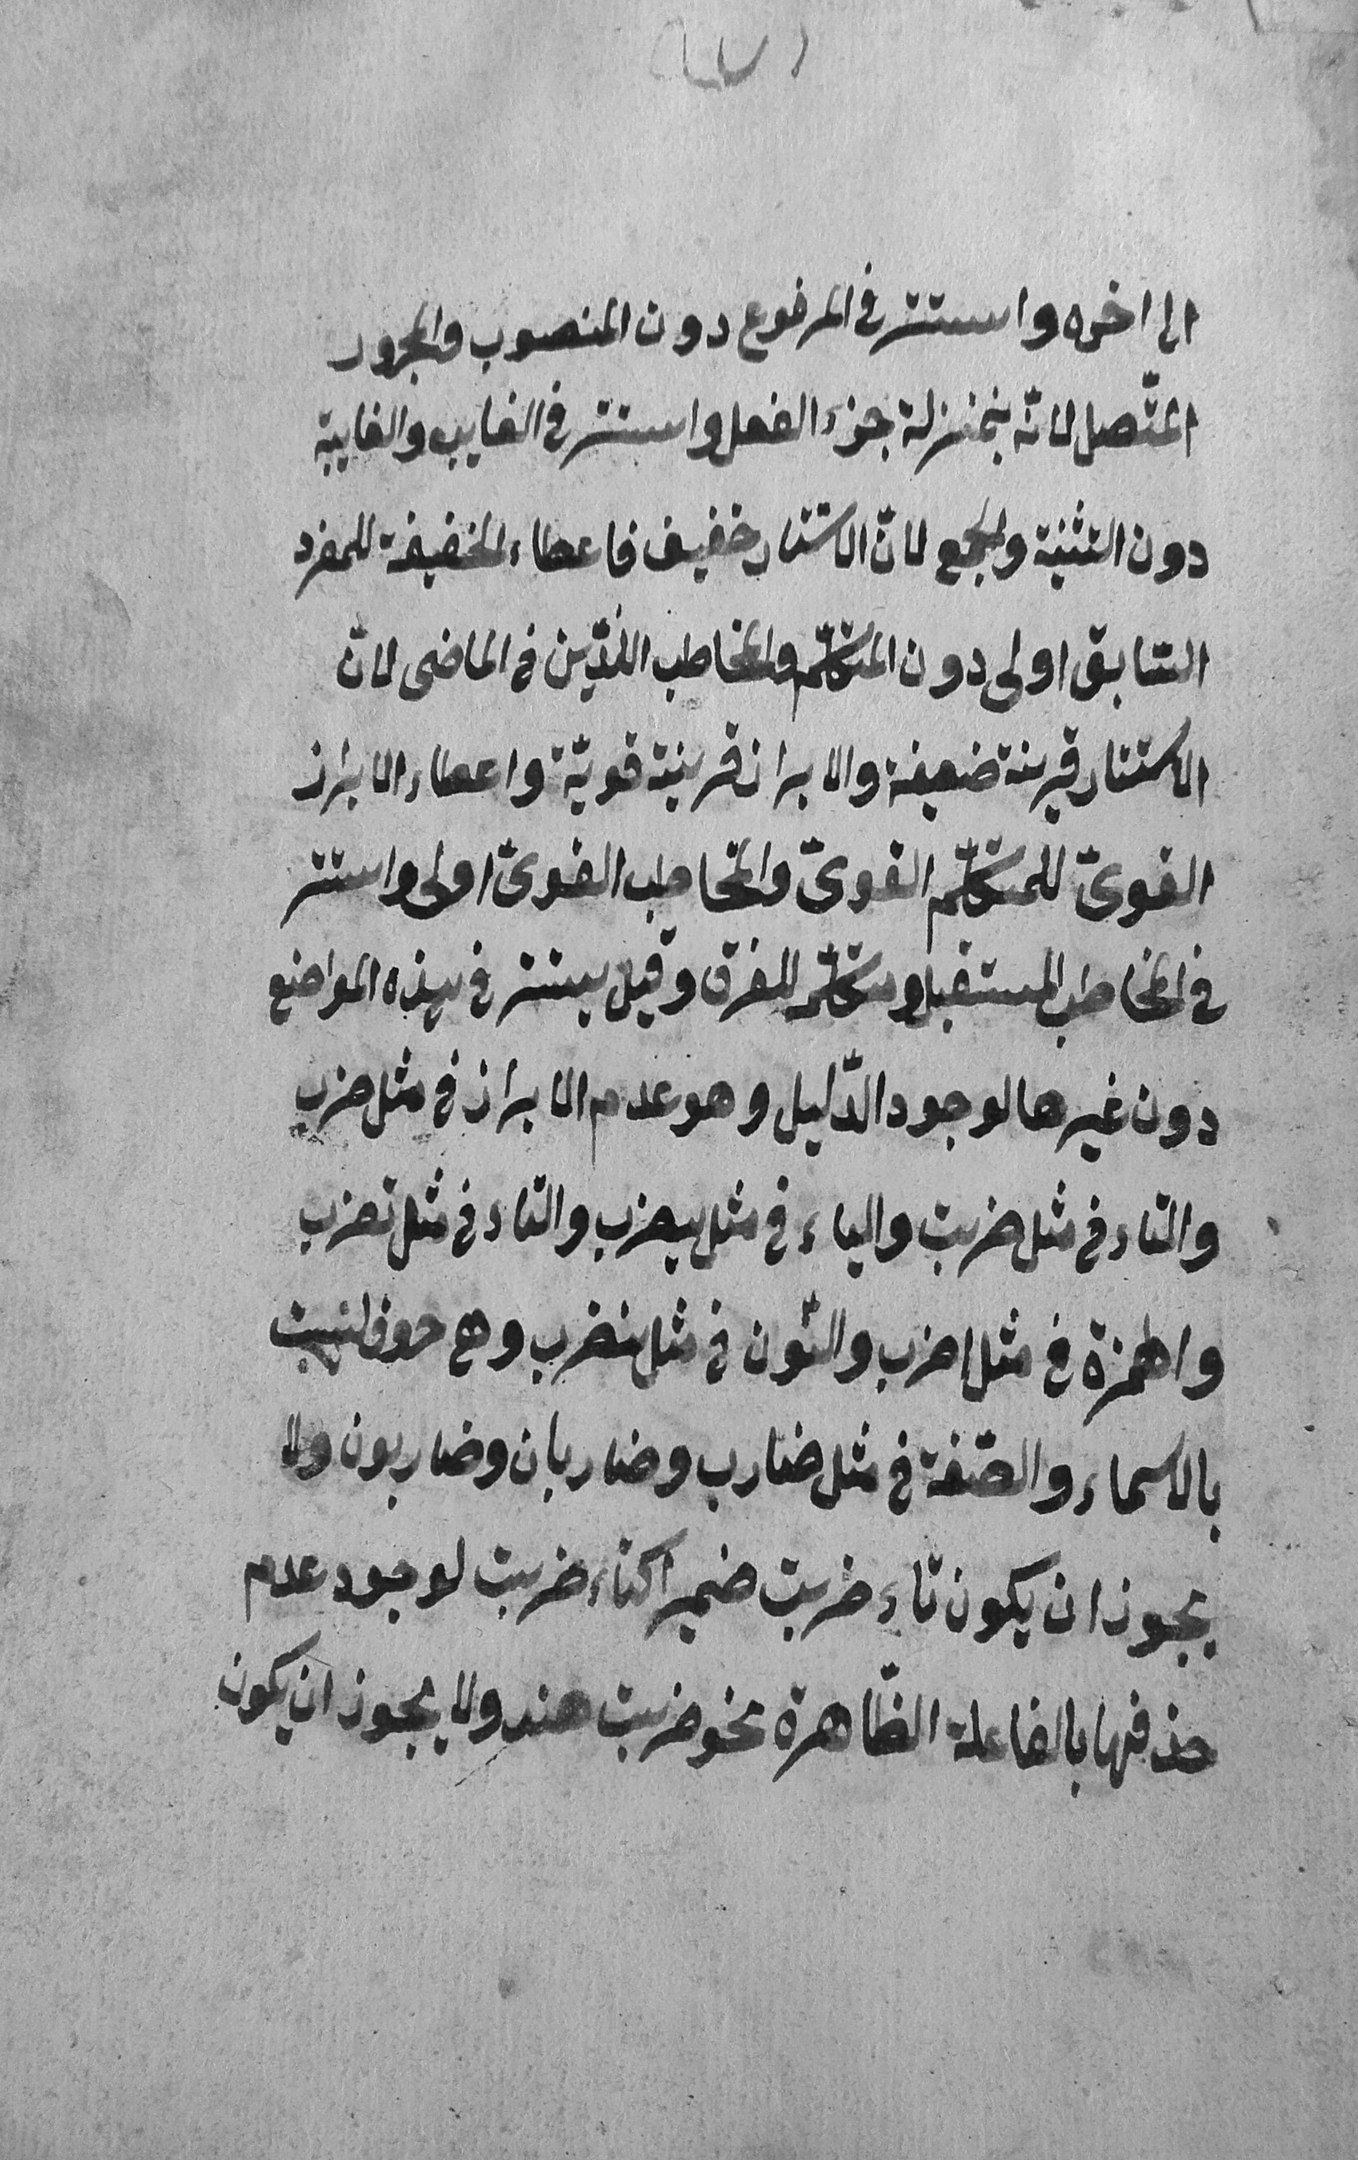 الى اخره واستتر فى المرفوع دون المنصوب والمجرور
المتّصل لانّه بمنزلة جزء الفعل واستتر فى الغايب والغايبة
دون التثنية والجمع لانّ الاستتار خفيف فاعطاء الخفيفة للمفرد
السّابق اولى دون المتكلّم والمخاطب اللّذين فى الماضى لانّ
الاستتار قرينة ضعيفة والابراز قرينة قويّة واعطاء الابراز
القوىّ للمتكلّم القوىّ والمخاطب القوىّ اولى واستتر
فى المخاطب المستقبل ومتكلّمه للفرق وقيل يستتر فى هذه المواضع
دون غيرها لوجود الدّليل وهو عدم الابراز فى مثل ضرب
والتاء فى مثل ضربت والياء فى مثل يضرب والتاء فى مثل تضرب
والهمزة فى مثل اضرب والنّون فى مثل نضرب وهى حروف ليست
بالاسماء والصّفة فى مثل ضارب وضاربان وضاربون ولا
يجوز ان يكون تاء ضربت ضميرا كتاء ضربت لوجود عدم
حذفها بالفاعلة الظّاهرة نحو ضربت هند ولا يجوز ان يكون